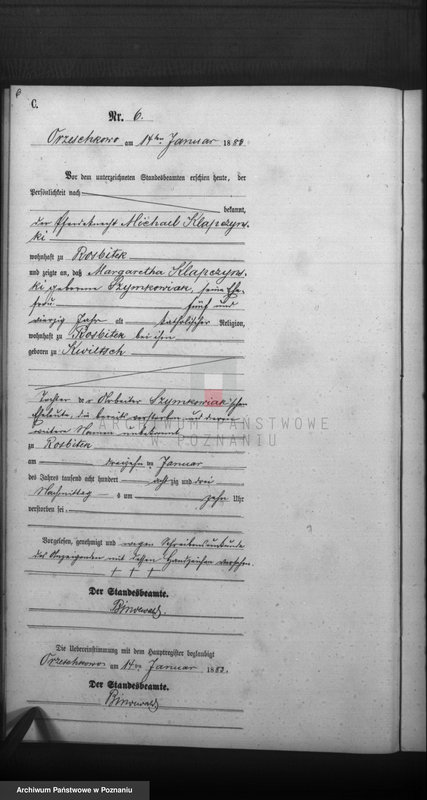 6
C.
Nr. 6.
Orzeschkowo am 14ten Januar 1883
Vor dem unterzeichneten Standesbeamten erschien heute, der
Persönlichkeit nach
bekannt,
der Pferdeknecht Michael Klapczyns-
ki
wohnhaft zu Rosbitek
und zeigte an, daß Margaretha Klapczyns-
ki geborene Szymkowiak, seine Ehe-
frau fünf und
vierzig Jahr alt katholischer Religion,
wohnhaft zu Rosbitek bei ihm
geboren zu Kwiltsch
Tochter der Arbeiter Szymkowiak'schen
Eheleute, die bereits verstorben und deren
weitere Namen unbekannt
zu Rosbitek
am dreizehnten Januar
des Jahres tausend acht hundert achtzig und drei
Nachmittags um zehn Uhr
verstorben sei.
Vorgelesen, genehmigt und wegen Schreibensunkunde
des Anzeigenden mit dessen Handzeichen versehen.
+ + +
Der Standesbeamte.
Die Uebereinstimmung mit dem Hauptregister beglaubigt
Orzeschkowo am 14ten Januar 1883.
Der Standesbeamte.
ARCHIWUM PAŃSTWOWE
W POZNANIU
Archiwum Państwowe w Poznaniu